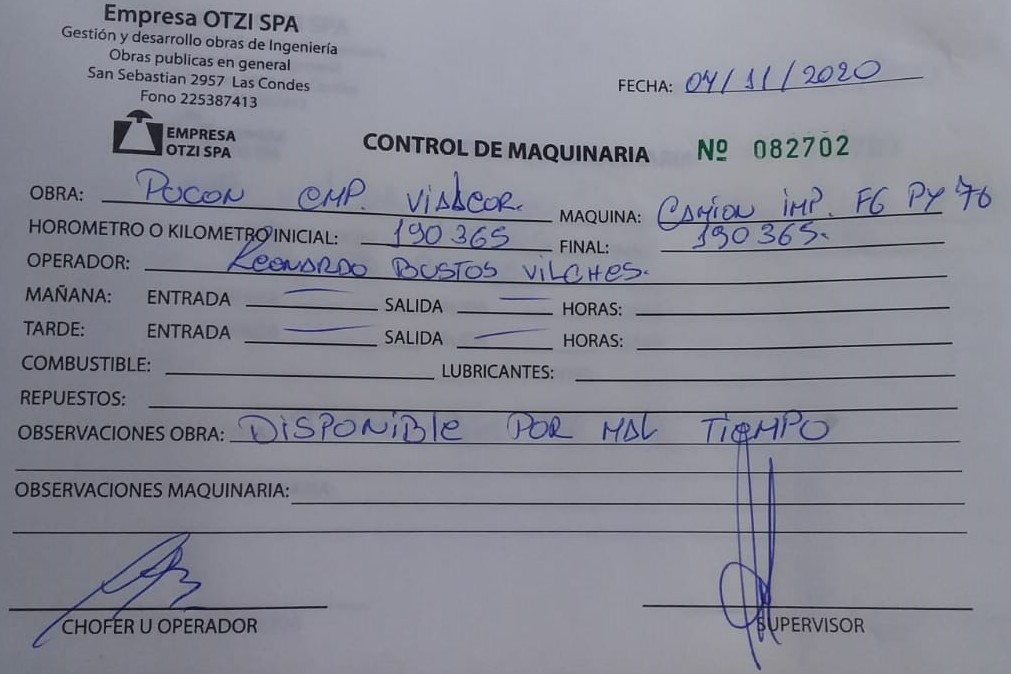 Empresa OTZI SPA
Gestión y desarrollo obras de Ingeniería
Obras publicas en general
San Sebastian 2957 Las Condes
Fono 225387413
FECHA: 04/11/2020
EMPRESA
OTZI SPA
CONTROL DE MAQUINARIA Nº 082702
OBRA: PUCON CMP. VIALCOR. MAQUINA: CAMION IMP. FG PY 76
HOROMETRO O KILOMETRO INICIAL: 190365 FINAL: 190365.
OPERADOR: LEONARDO BUSTOS VILCHES.
MAÑANA: ENTRADA — SALIDA — HORAS:
TARDE: ENTRADA — SALIDA — HORAS:
COMBUSTIBLE: LUBRICANTES:
REPUESTOS:
OBSERVACIONES OBRA: DISPONIBLE POR MAL TIEMPO
OBSERVACIONES MAQUINARIA:
CHOFER U OPERADOR SUPERVISOR